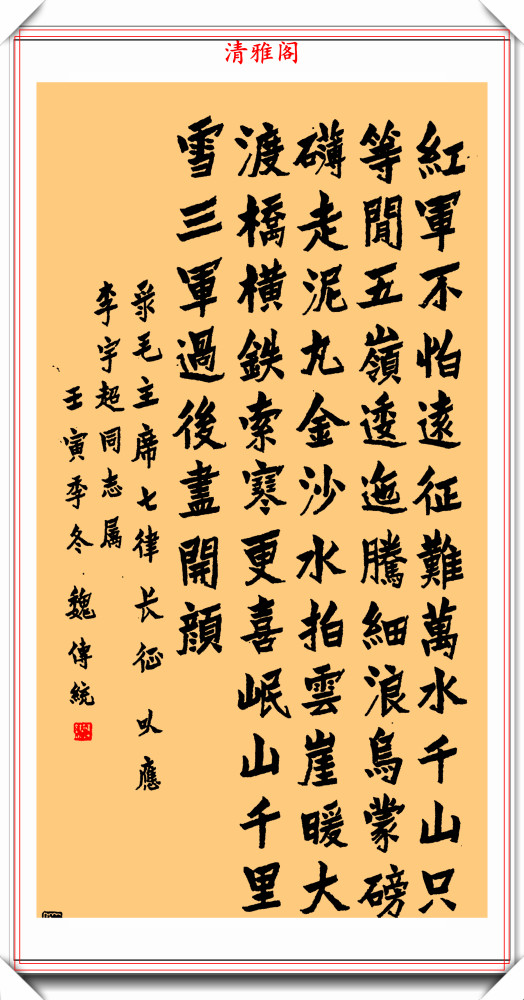 清雅阁
紅軍不怕遠征難萬水千山只
等閒五嶺逶迤騰細浪烏蒙磅
礴走泥丸金沙水拍雲崖暖大
渡橋橫鉄索寒更喜岷山千里
雪三軍過後盡開顔
录毛主席七律长征以應
李宇超同志属
壬寅季冬 魏傳統